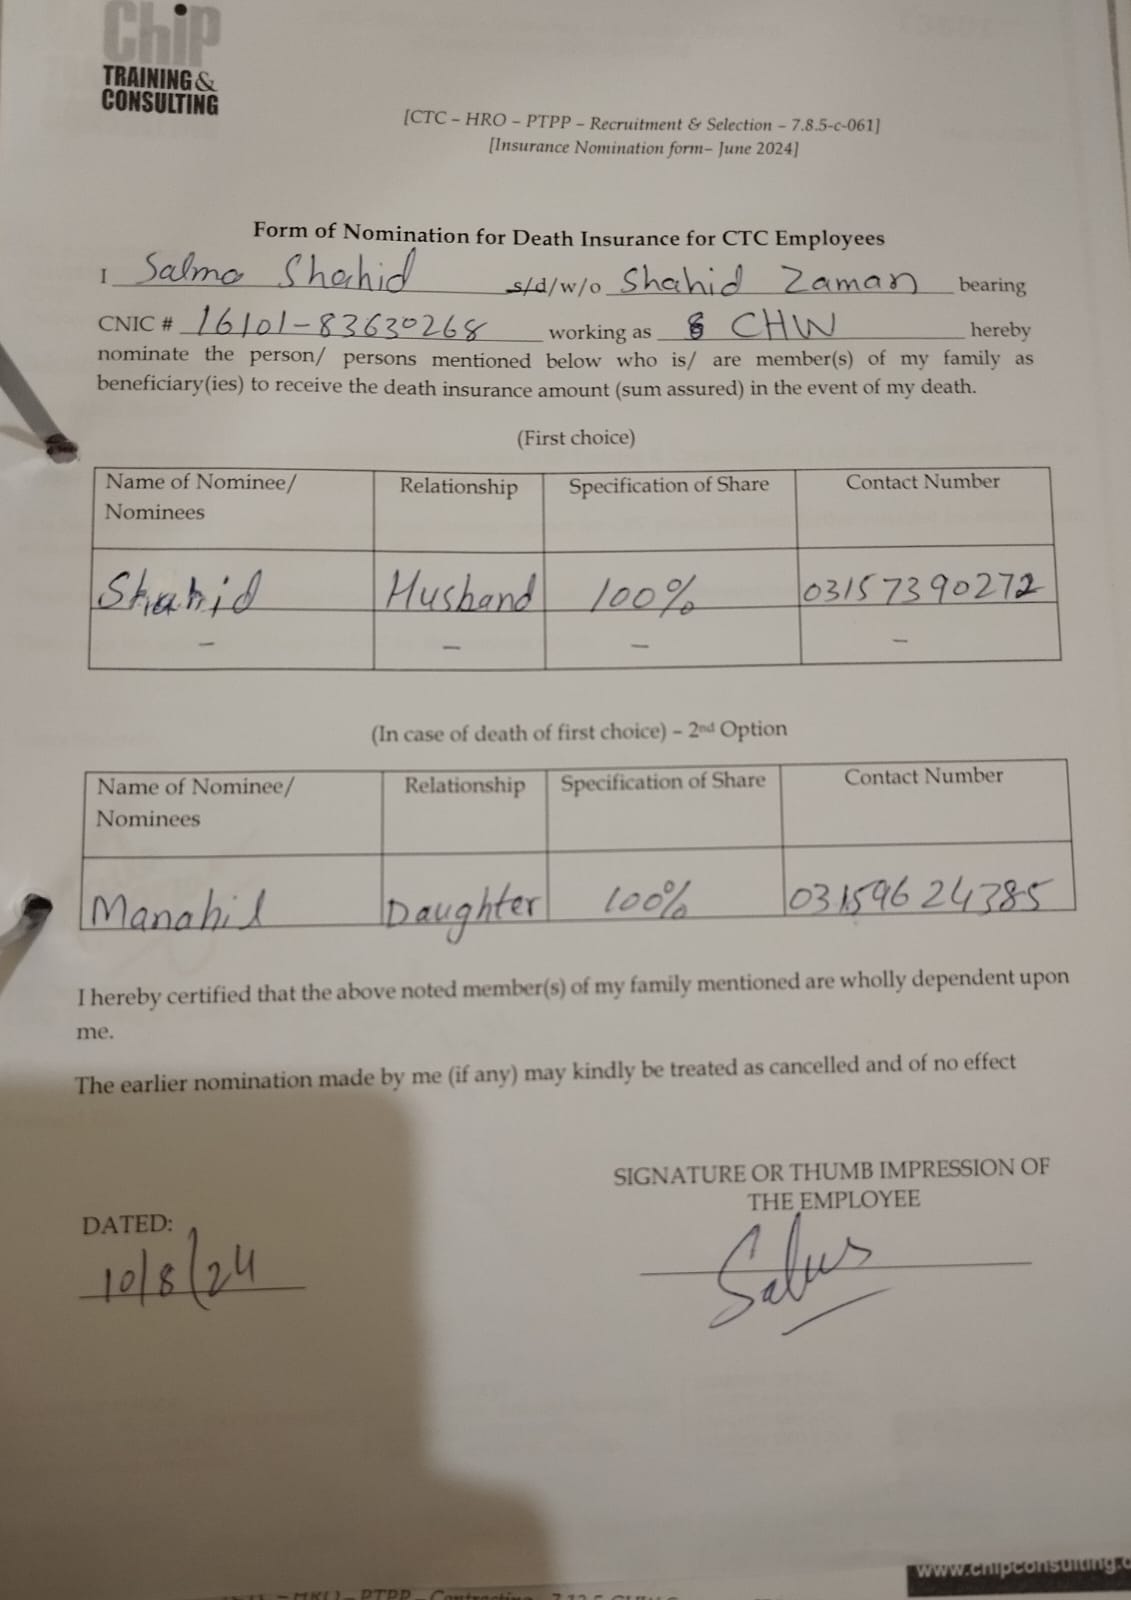 Chip
TRAINING &
CONSULTING
[CTC – HRO – PTPP – Recruitment & Selection – 7.8.5-c-061]
[Insurance Nomination form– June 2024]
Form of Nomination for Death Insurance for CTC Employees
I Salma Shahid s/d/w/o Shahid Zaman bearing
CNIC # 16101-83630268 working as CHW hereby
nominate the person/ persons mentioned below who is/ are member(s) of my family as
beneficiary(ies) to receive the death insurance amount (sum assured) in the event of my death.
(First choice)
Name of Nominee/ Relationship Specification of Share Contact Number
Nominees
Shahid Husband 100% 03157390272
– – – –
(In case of death of first choice) – 2nd Option
Name of Nominee/ Relationship Specification of Share Contact Number
Nominees
Manahil Daughter 100% 03159624385
I hereby certified that the above noted member(s) of my family mentioned are wholly dependent upon
me.
The earlier nomination made by me (if any) may kindly be treated as cancelled and of no effect
SIGNATURE OR THUMB IMPRESSION OF
THE EMPLOYEE
DATED:
10/8/24
www.chipconsulting.c
PTPP